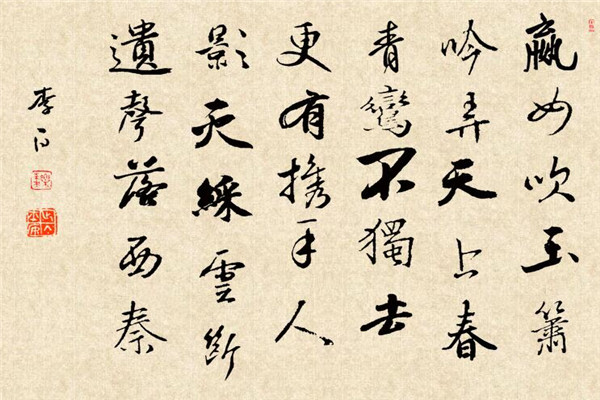 嬴女吹玉簫
吟弄天上春
青鸞不獨去
更有携手人
影灭綵雲断
遺聲落西秦
李白